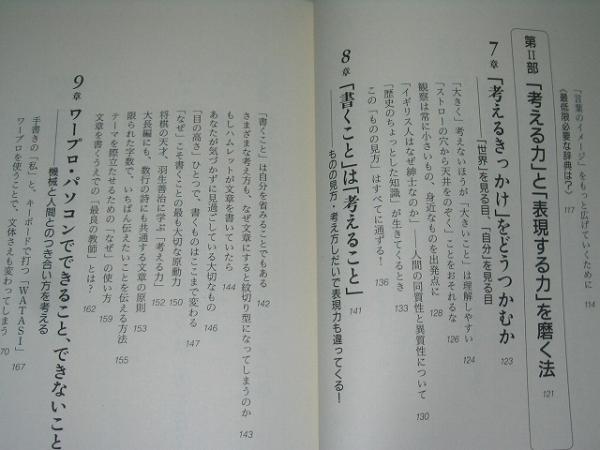 「言葉のイメージ」をもっと広げていくために 114
〈最低限必要な辞典は?〉 117
第Ⅱ部 「考える力」と「表現する力」を磨く法 121
7章 「考えるきっかけ」をどうつかむか 123
「世界」を見る目、「自分」を見る目
「大きく」考えないほうが「大きいこと」は理解しやすい 124
「ストローの穴から天井をのぞく」ことをおそれるな 126
観察は常に小さいもの、身近なものを出発点に 128
「イギリス人はなぜ紳士なのか」――人間の同質性と異質性について 130
「歴史のちょっとした知識」が生きてくるとき 133
この「ものの見方」はすべてに通ずる! 136
8章 「書くこと」は「考えること」 141
ものの見方・考え方しだいで表現力も違ってくる!
「書くこと」は自分を省みることでもある 142
さまざまな考え方も、なぜ文章にすると紋切り型になってしまうのか 143
もしハムレットが文章を書いていたら 144
あなたが気づかずに見過ごしている大切なもの 146
「目の高さ」ひとつで、書くものはここまで変わる 147
「なぜ」こそ書くことの最も大切な原動力 150
将棋の天才、羽生善治に学ぶ「考える力」 152
大長編にも、数行の詩にも共通する文章の原則 153
限られた字数で、いちばん伝えたいことを伝える方法 155
テーマを際立たせるための「なぜ」の使い方 159
文章を書くうえでの「最良の教師」とは? 162
9章 ワープロ・パソコンでできること、できないこと
機械と人間とのつき合い方を考える
手書きの「私」と、キーボードで打つ「WATASI」 167
ワープロを使うことで、文体さえも変わってしまう 70